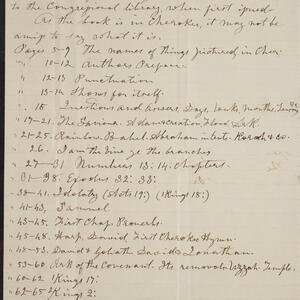 to the Congressional library, when first issued.
As the book is in Cherokee, it may not be
amiss to say what it is.
Pages 5-9 The names of things pictured in Cher.
" 10-12 Authors Prepare.
" 12-13 Punctuation
" 13-14 Shows for itself.
" 15 Questions and Answers, Days, weeks, months, Time
" 17-21. The Saviour. Adam & creation Flood, Ark.
" 21-25. Rainbow. Babel. Abraham
" 26. I am the vine ye the branches
" 27-31 Numbers 13: 14: Chapters.
" 31-38: Exodus 32: 33:
" 38-41. Idolatry (Acts 19:) (1 Kings 18:)
" 41-43, Samuel
" 43-45. First Chap Proverbs.
" 45-48. Harp, David, First Cherokee Hymn.
" 48-53. David & Goliath David & Jonathan.
" 53-60 Ark of the Covenant. Its removal Uzzah. Temple.
" 60-62 1 Kings 17:
" 62-65 1 Kings 2: